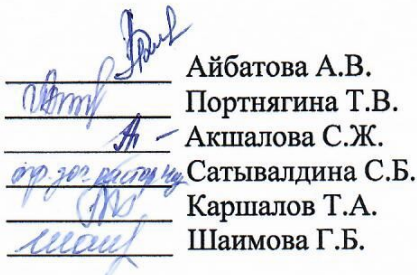 Айбатова А.В.
Портнягина Т.В.
Акшалова С.Ж.
Сатывалдина С.Б.
Каршалов Т.А.
Шаимова Г.Б.